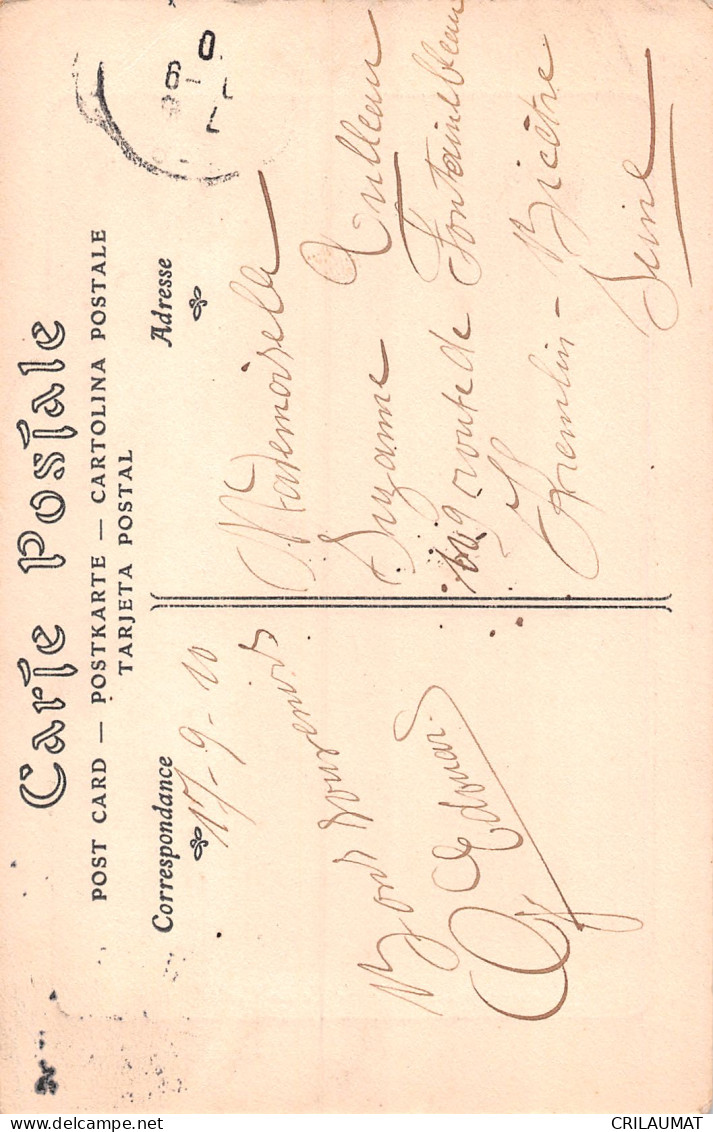 Carte Postale
POST CARD — POSTKARTE — CARTOLINA POSTALE
TARJETA POSTAL
Correspondance
Adresse
17-9-10
Bons Souvenirs
Edouard.
Mademoiselle
Suzanne
route de Fontainebleau
Kremlin-Bicêtre
Seine
CRILAUMAT